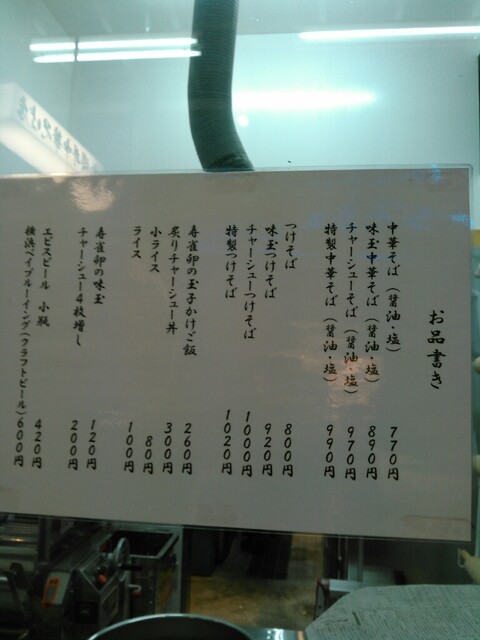 お品書き
中華そば（醤油・塩） 770円
味玉中華そば（醤油・塩） 890円
チャーシューそば（醤油・塩） 970円
特製中華そば（醤油・塩） 990円
つけそば 800円
味玉つけそば 920円
チャーシューつけそば 1000円
特製つけそば 1020円
寿雀卵の玉子かけご飯 260円
炙りチャーシュー丼 300円
小ライス 80円
ライス 100円
寿雀卵の味玉 120円
チャーシュー4枚増し 200円
エビスビール 小瓶 420円
横浜ベイブルーイング（クラフトビール） 600円